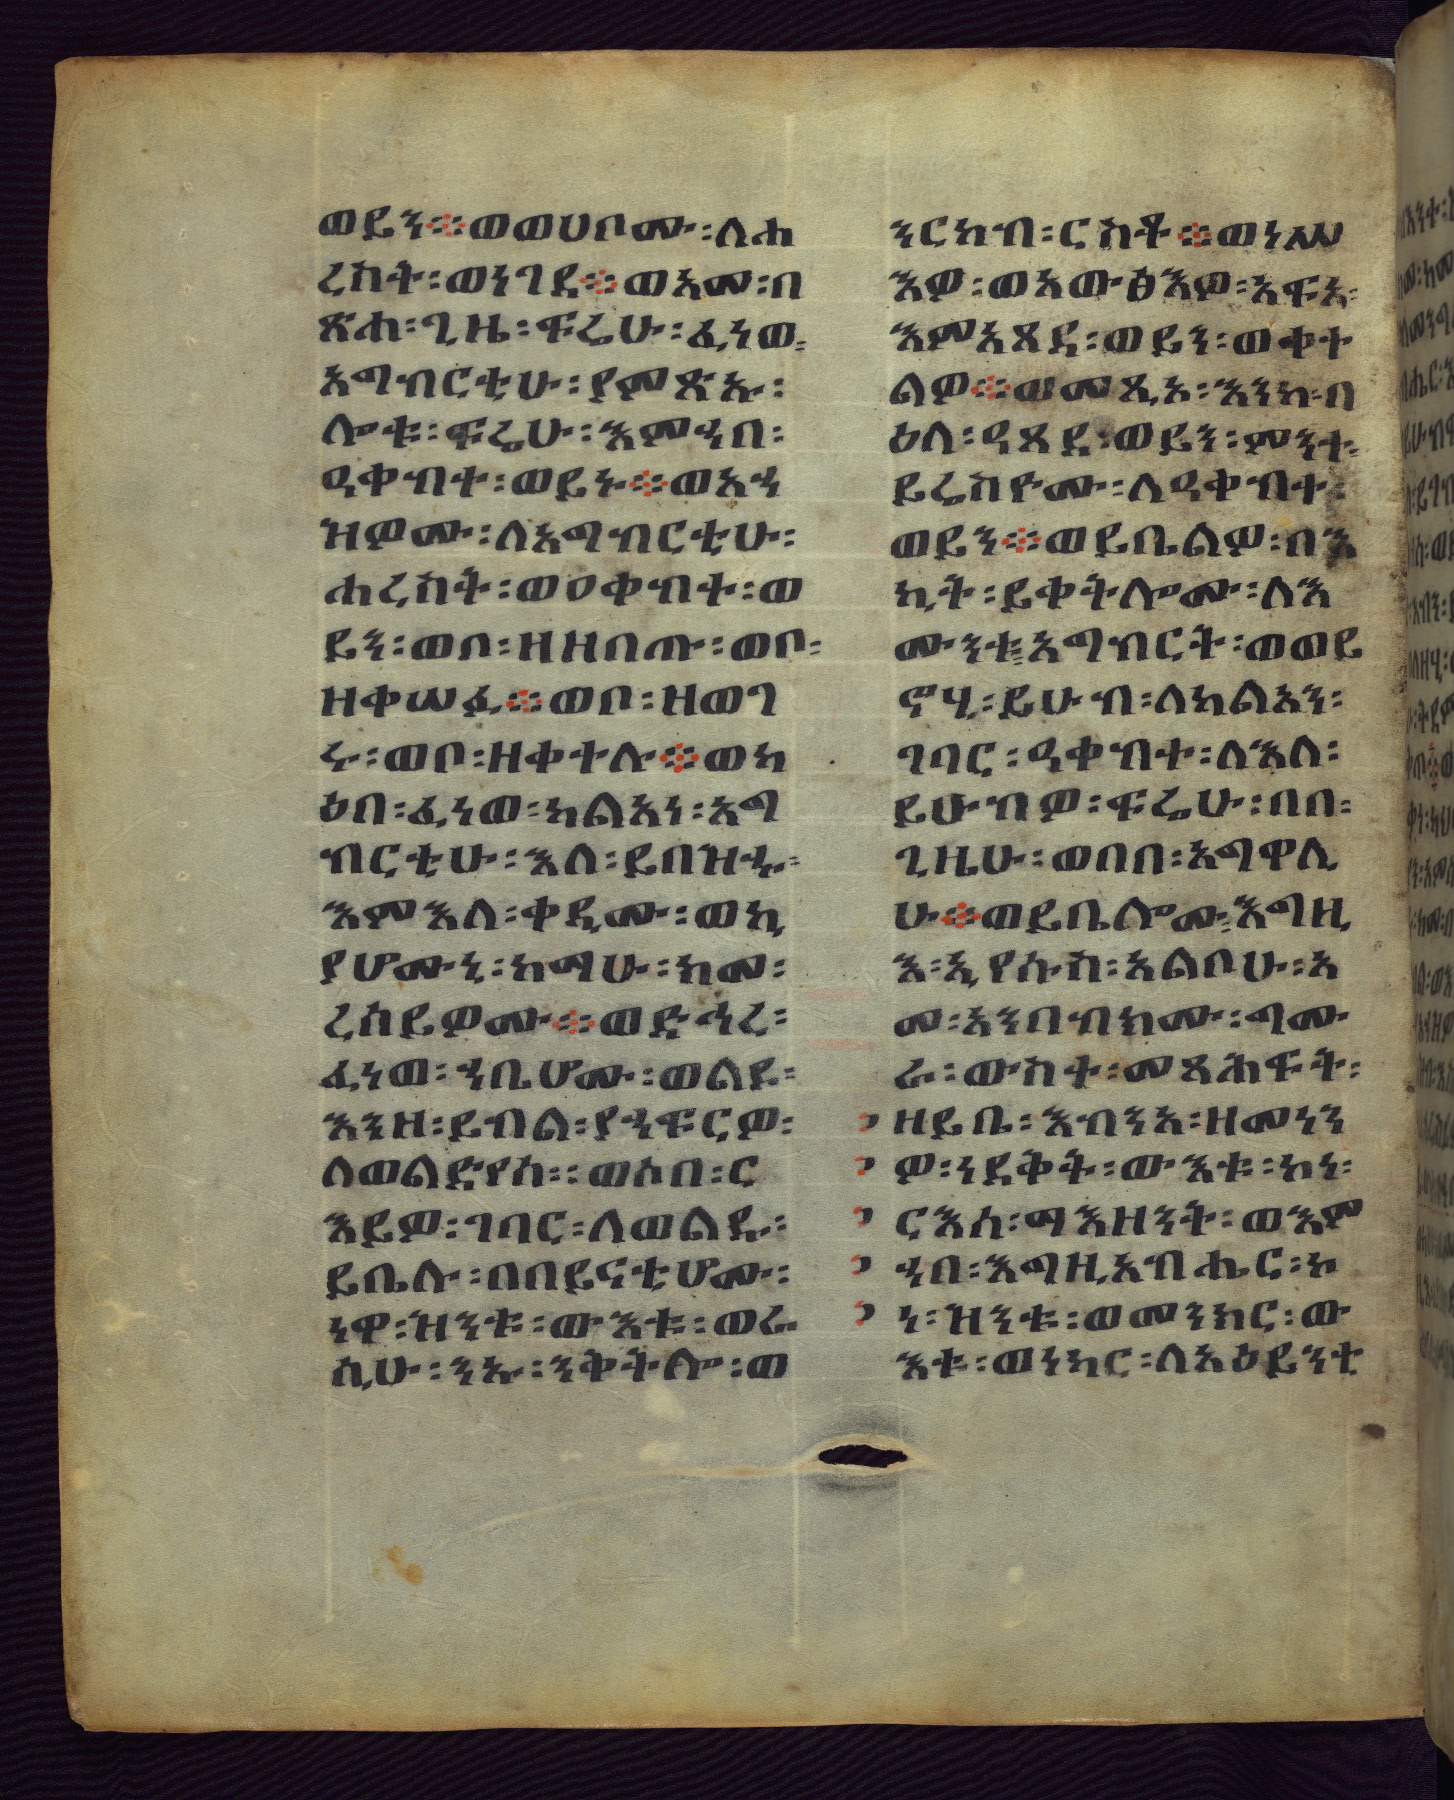 ወይን፨ወወሀቦሙ፡ለሐ
ረስት፡ወነገደ፨ወአመ፡በ
ጽሐ፡ጊዜ፡ፍሬሁ፡ፈነወ፡
አግብርቲሁ፡ያምጽኡ፡
ሎቱ፡ፍሬሁ፡እምኀበ፡
ዓቀብተ፡ወይኑ፨ወአኀ
ዝዎሙ፡ለአግብርቲሁ፡
ሐረስት፡ወዐቀብተ፡ወ
ይን፡ወቦ፡ዘዘበጡ፡ወቦ፡
ዘቀሠፉ፨ወቦ፡ዘወገ
ሩ፡ወቦ፡ዘቀተሉ፨ወካ
ዕበ፡ፈነወ፡ካልአነ፡አግ
ብርቲሁ፡እለ፡ይበዝኁ፡
እምእለ፡ቀዲሙ፡ወኪ
ያሆሙኒ፡ከማሁ፡ከመ፡
ረሰይዎሙ፨ወድኅረ፡
ፈነወ፡ኀቤሆሙ፡ወልዶ፡
እንዘ፡ይብል፡የኀፍርዎ፡
ለወልድየሰ፡፡ወሶበ፡ር
እይዎ፡ገባር፡ለወልዱ፡
ይቤሉ፡በበይናቲሆሙ፡
ነዋ፡ዝንቱ፡ውእቱ፡ወራ
ሲሁ፡ንኡ፡ንቅትሎ፡ወ
ንርከብ፡ርስቶ፨ወነሥ
እዎ፡ወአውፅእዎ፡አፍአ፡
እምአጸደ፡ወይን፡ወቀተ
ልዎ፨ወመጺኦ፡እንከ፡በ
ዕለ፡ዓጸደ፡ወይን፡ምንተ፡
ይሬስዮሙ፡ለዓቀብተ፡
ወይን፨ወይቤልዎ፡በእ
ኪት፡ይቀትሎሙ፡ለእ
ሙንቱ፡አግብርት፡ወወይ
ኖሂ፡ይሁብ፡ለካልአን፡
ገባር፡ዓቀብተ፡ለእለ፡
ይሁብዎ፡ፍሬሁ፡በበ፡
ጊዜሁ፡ወበበ፡አግዋሊ
ሁ፨ወይቤሎሙ፡እግዚ
እ፡ኢየሱስ፡አልቦሁ፡አ
መ፡አንበብክሙ፡ግሙ
ራ፡ውስተ፡መጻሕፍት፡
ዘይቤ፡እብንእ፡ዘመነን
ዎ፡ነደቅት፡ውእቱ፡ኮነ፡
ርእሰ፡ማእዘንት፡ወእም
ኀበ፡እግዚአብሔር፡ኮ
ነ፡ዝንቱ፡ወመንክር፡ው
እቱ፡ወነኪር፡ለአዕይንቲ